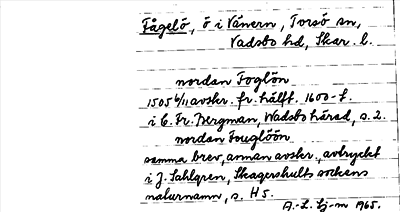 Fågelö, ö i Vänern, Torsö sn,
Vadsbo hd, Skar. l.
nordan Foglön
1505 6/11 avskr. fr. hälft. 1600-t.
i C. Fr. Bergman, Wadsbo härad, s. 2.
nordan Fouglöön
samma brev, annan avskr., avtryckt
i J. Sahlgren, Skagershults sockens
naturnamn, s. H5.
A.-L. Lj-m 1965.